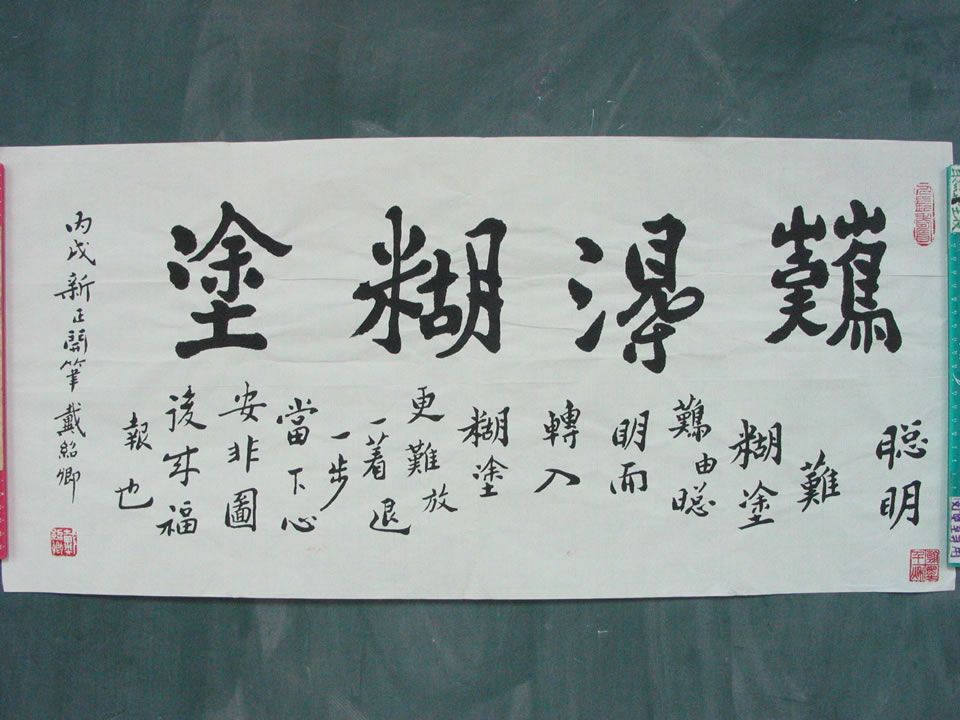 難得糊塗
聰明
難
糊塗
難由聰
明而
轉入
糊塗
更難放
一着退
一步
當下心
安非圖
後來福
報也
丙戌新正開筆 戴